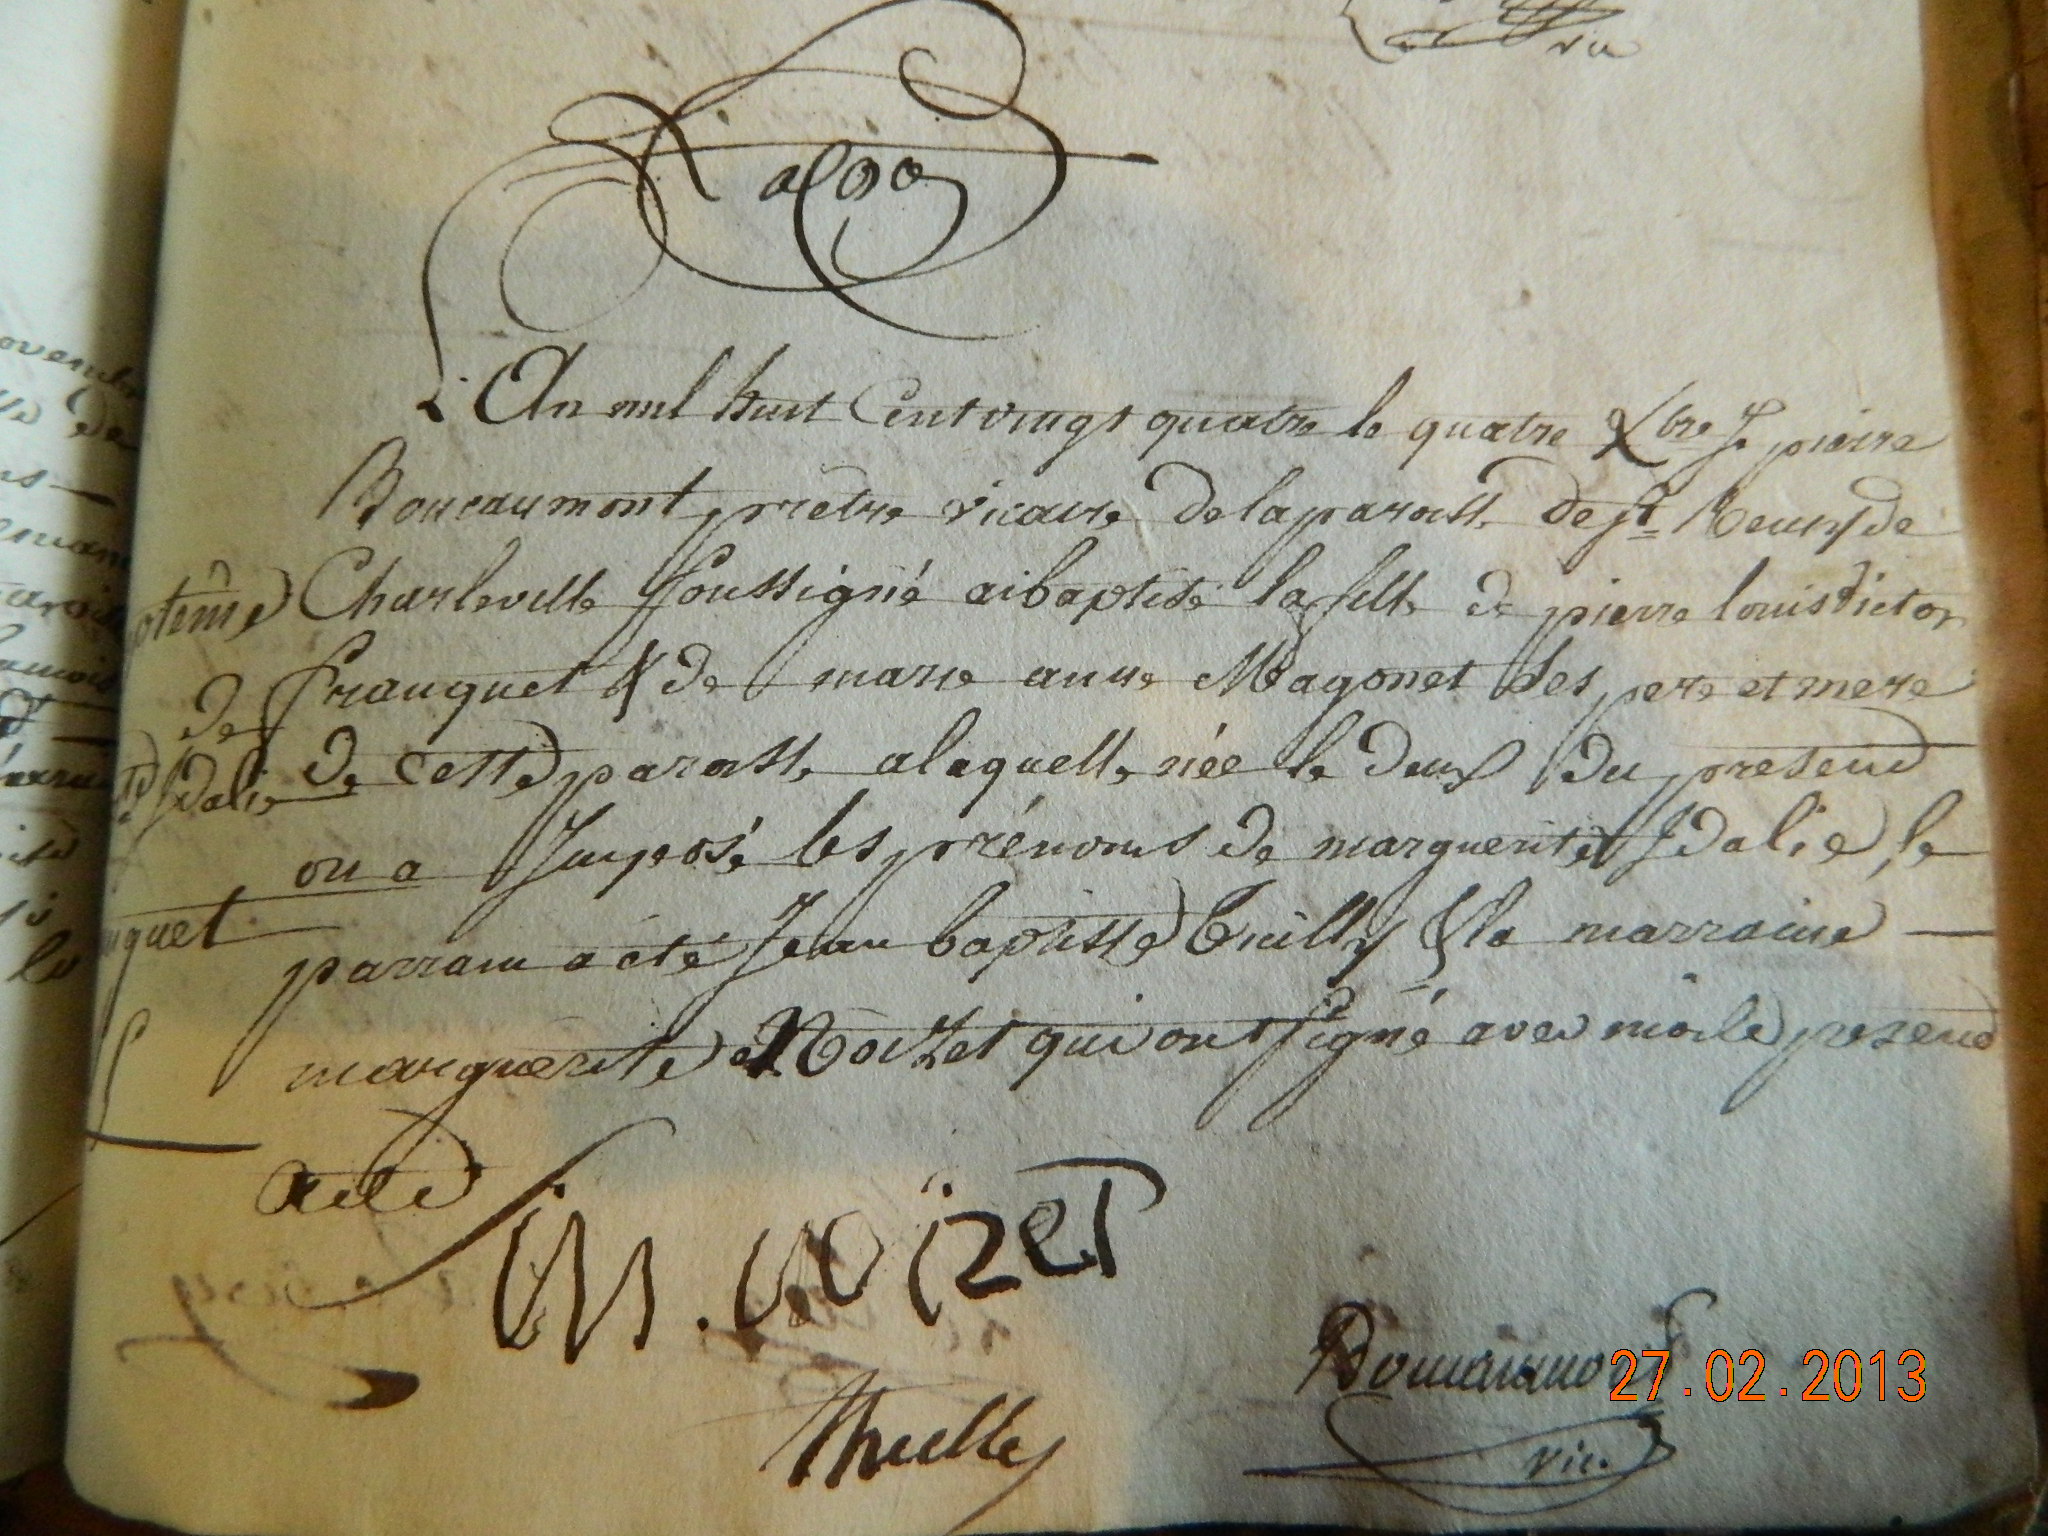 vic
L'An mil huit Cent vingt quatre le quatre Xbre Je pierre
Boucaumont prêtre vicaire de la paroisse de st Remy de
Charleville soussigné ai baptisé la fille de pierre louis victor
franquet & de marie anne Magonet Ses pere et mere
de cette paroisse a laquelle née le deux du presend
on a Imposé les prénoms de marguerite Idalie, le
parrain a été Jean baptiste Thilly & la marraine
marguerite Noizet qui ont signé avec moi le presend
Acte
ptême
de
Idalie
nquet
M. Noizet
Thuilly
Boucaumont
vic.
27.02.2013